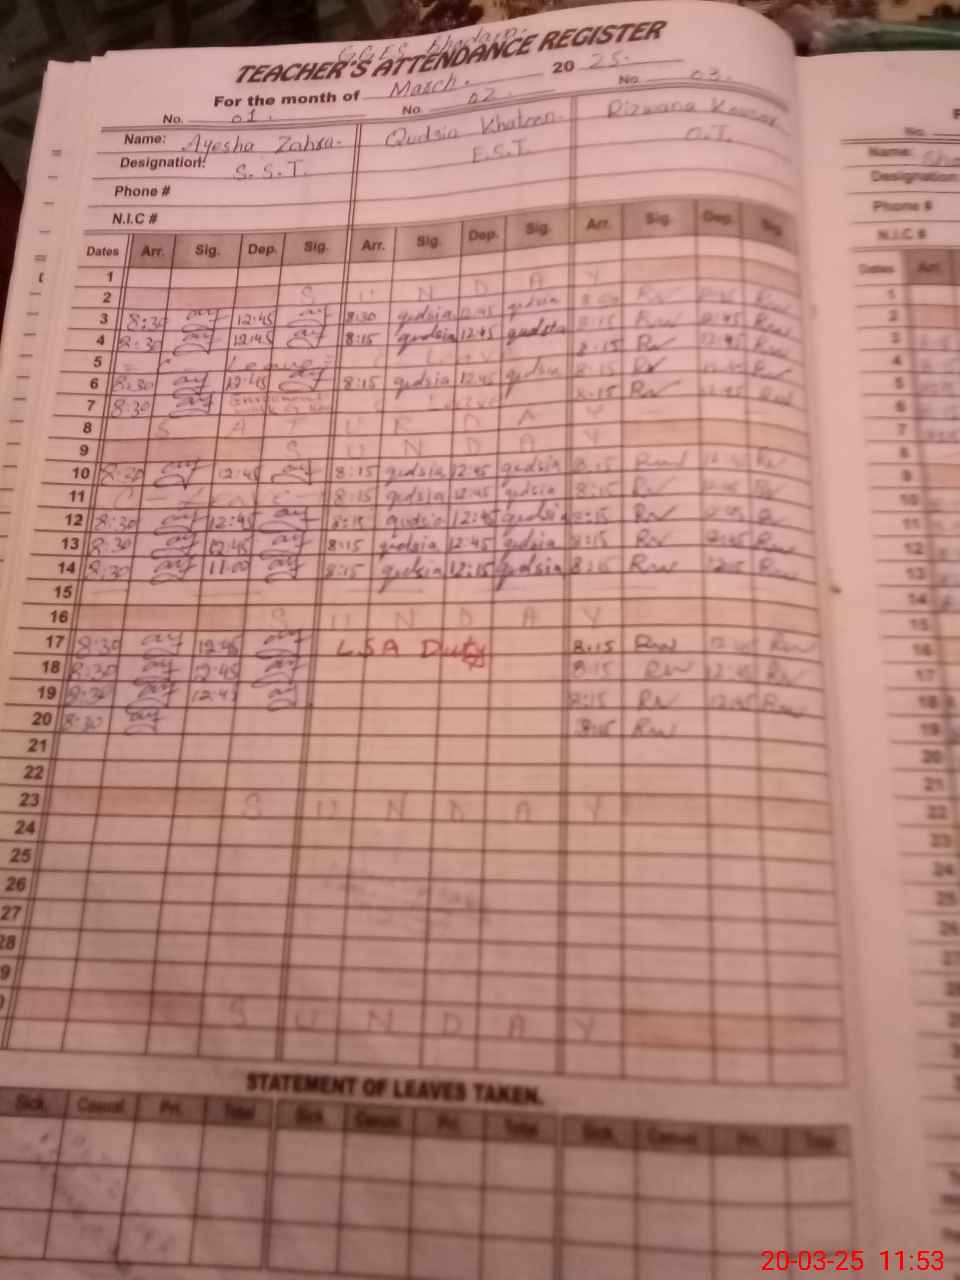 G.G.E.S
TEACHER'S ATTENDANCE REGISTER
For the month of March. 20 25.
No. 01. No 02. No 03.
Name: Ayesha Zahra. Qudsia Khatoon. Rizwana Kausar
Designation: S.S.T. E.S.T. O.T.
Phone #
N.I.C #
Dates Arr. Sig. Dep. Sig. Arr. Sig. Dep. Sig. Arr. Sig. Dep. Sig.
1
2 S U N D A Y
3 8:30 ay 12:45 ay 8:30 qudsia 12:45 qudsia Rw Rw
4 8:30 ay 12:45 ay 8:15 qudsia 12:45 qudsia 8:15 Rw 12:45 Rw
5 Leave Leave 8:15 Rw 12:45 Rw
6 8:30 ay 12:45 ay 8:15 qudsia 12:45 qudsia 8:15 Rw Rw
7 8:30 ay Leave 8:15 Rw 12:45 Rw
8 S A T U R D A Y
9 S U N D A Y
10 8:30 ay 12:45 ay 8:15 qudsia 12:45 qudsia 8:15 Rw Rw
11 C - Leave - 8:15 qudsia 12:45 qudsia 8:15 Rw 12:45 Rw
12 8:30 ay 12:45 ay 8:15 qudsia 12:45 qudsia 8:15 Rw 12:45 Rw
13 8:30 ay 12:45 ay 8:15 qudsia 12:45 qudsia 8:15 Rw 12:45 Rw
14 8:30 ay 11:00 ay 8:15 qudsia 12:15 qudsia 8:15 Rw Rw
15
16 S U N D A Y
17 8:30 ay 12:45 ay LSA Duty 8:15 Rw 12:45 Rw
18 8:30 ay 12:45 ay 8:15 Rw 12:45 Rw
19 8:30 ay 12:45 ay 8:15 Rw 12:45 Rw
20 8:30 ay 8:15 Rw
21
22
23 S U N D A Y
24
25
26
27
28
9
0 S U N D A Y
STATEMENT OF LEAVES TAKEN.
Sick. Casual Pri. Total Sick. Casual Pri. Total Sick. Casual Pri. Total
No.
Name:
Designation
Phone #
N.I.C #
Dates Arr.
1
2
3
4
5
6
7
8
9
10
11
12
13
14
15
16
17
18
19
20
21
22
23
24
25
26
27
20-03-25 11:53